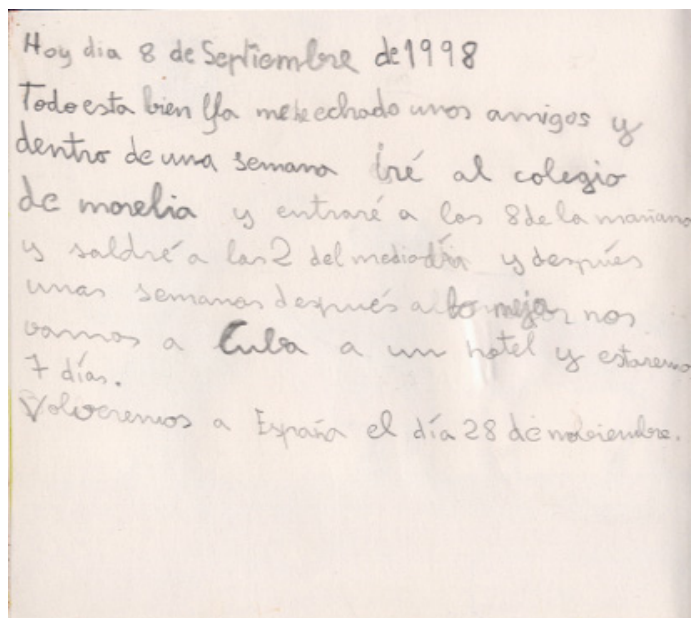 Hoy dia 8 de Septiembre de 1998
Todo esta bien Ya me he echado unos amigos y
dentro de una semana iré al colegio
de morelia y entraré a las 8 de la mañana
y saldré a las 2 del mediodía y después
unas semanas después a lo mejor nos
vamos a Cuba a un hotel y estaremo
7 días.
Volveremos a España el día 28 de nobiembre.